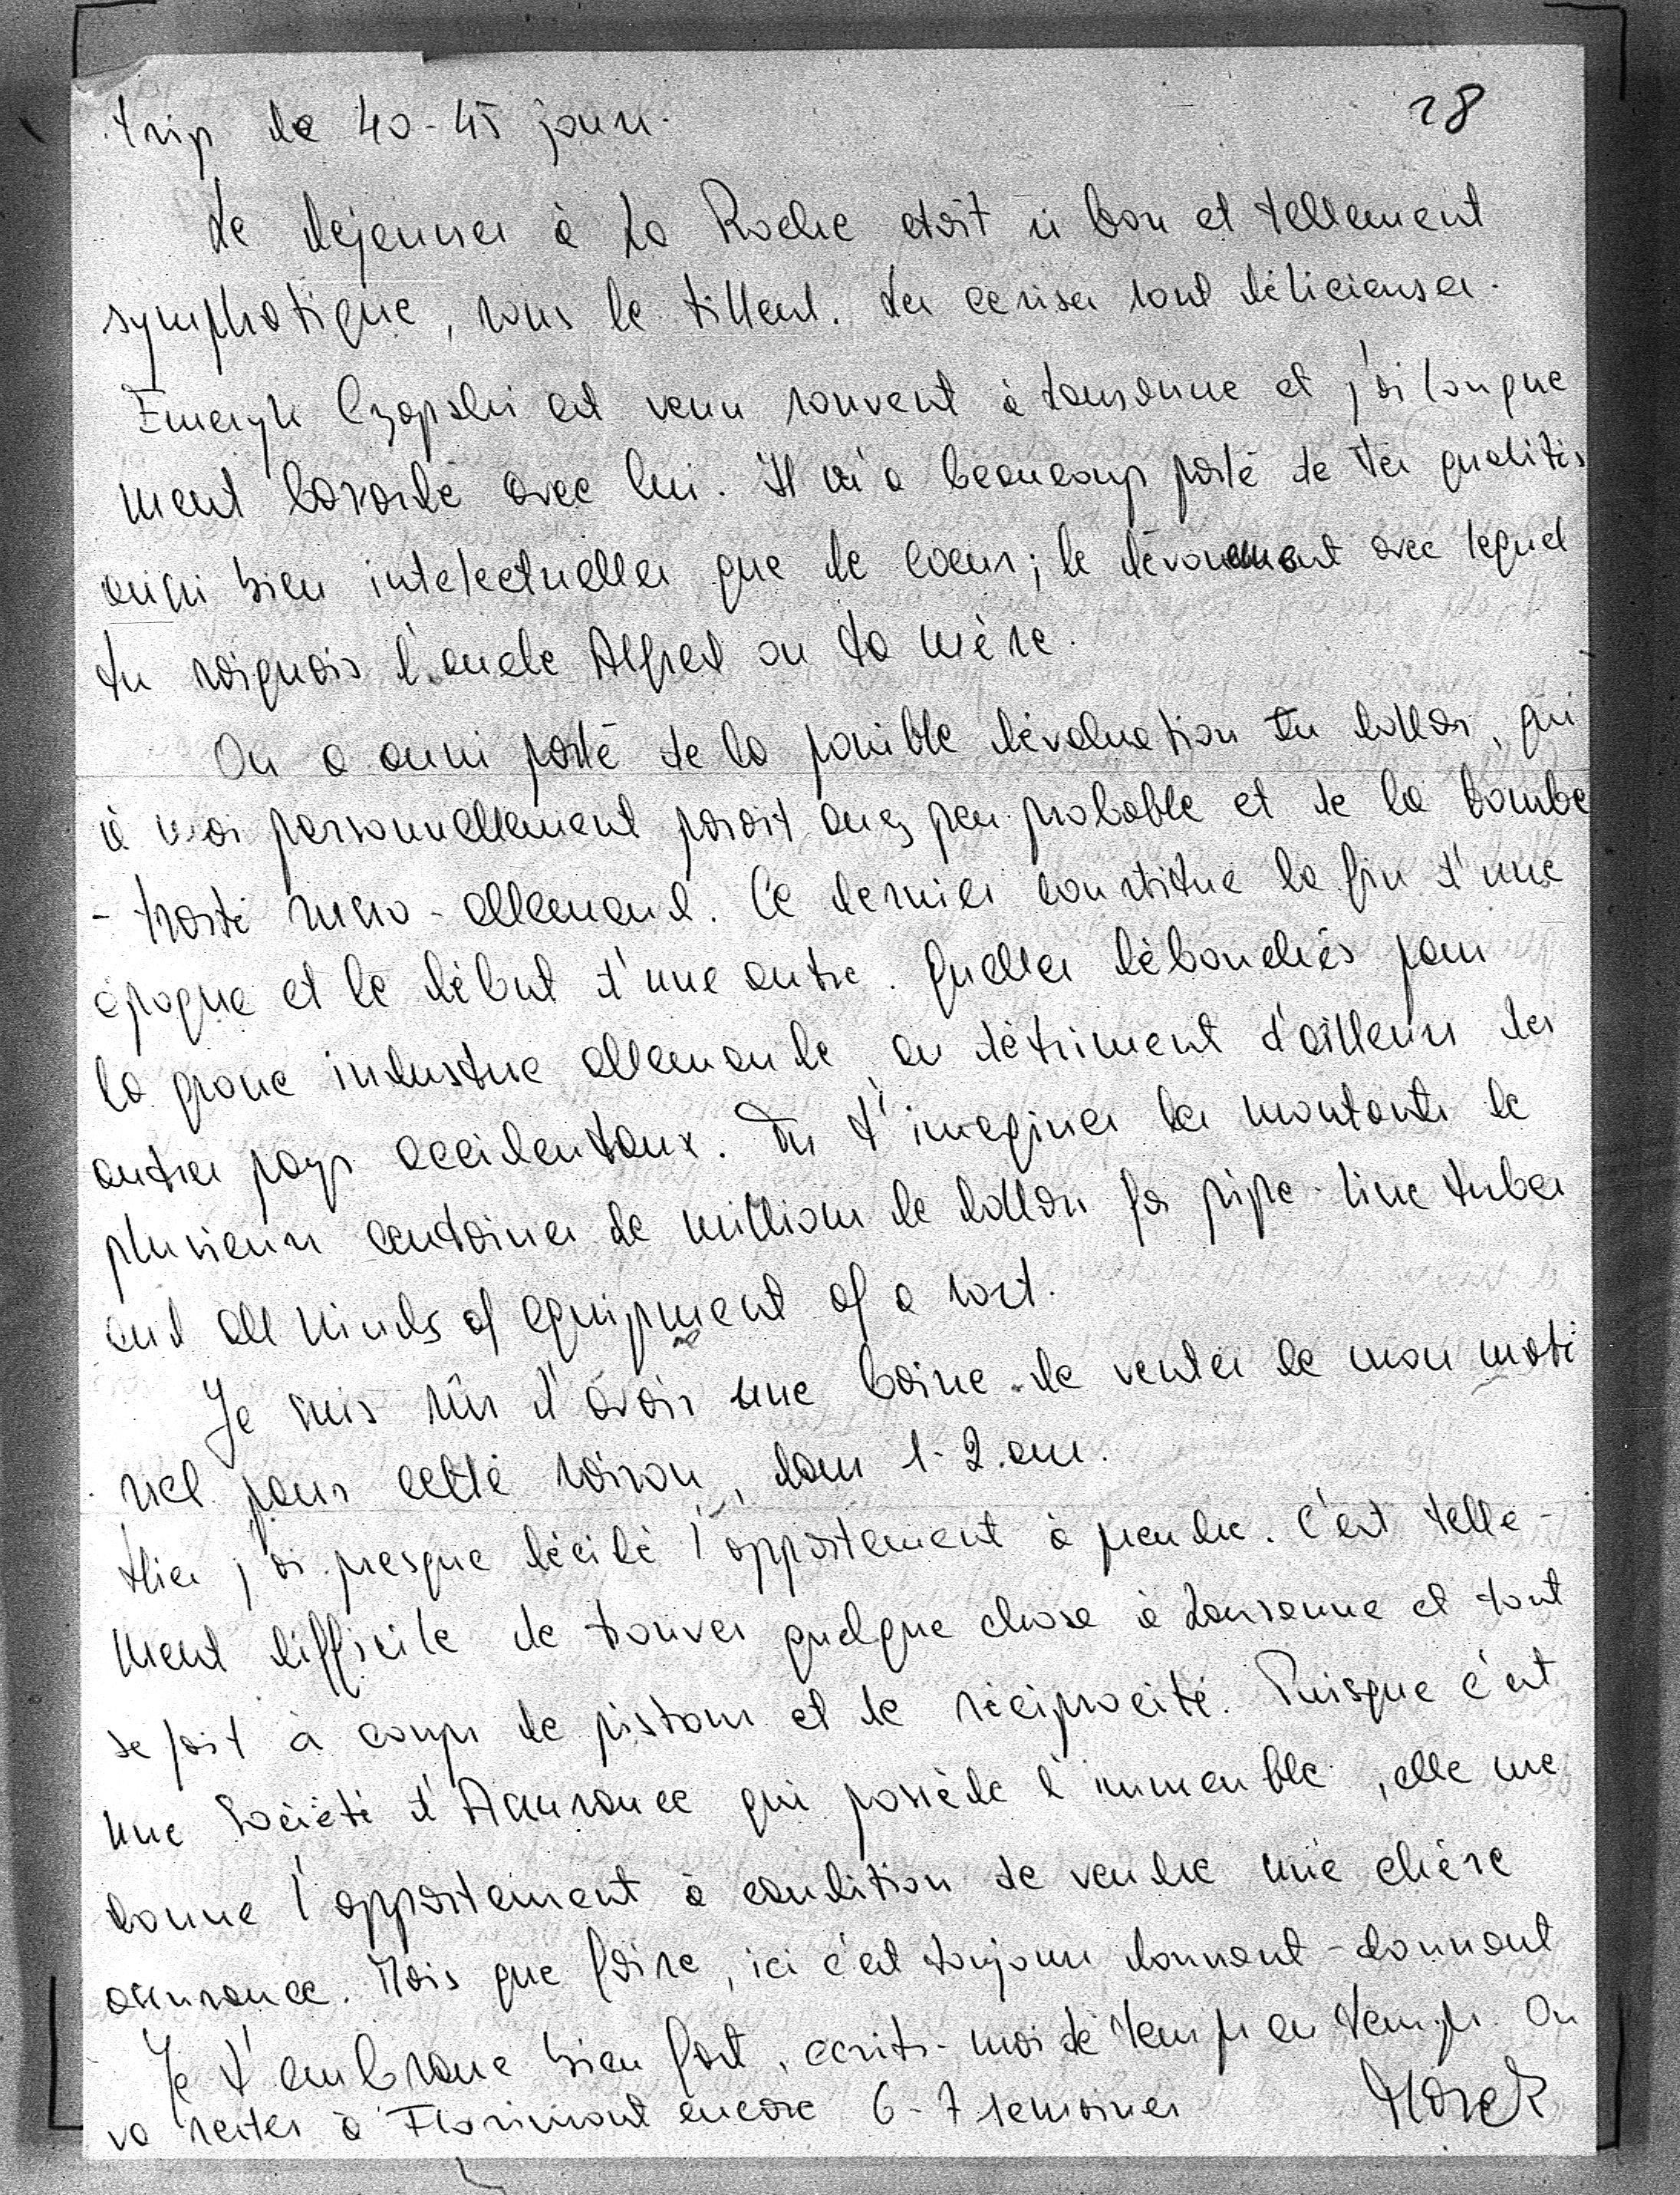 trip de 40-45 jours.
28
Le dejeuner à La Roche etait si bon et tellement
symphatique, sous le tilleul. Les cerises sont délicieuses.
Emeryk Czapski est venu souvent à Lausanne et j'ai longue
ment bavardé avec lui. Il m'a beaucoup parlé de tes qualités
aussi bien intelectuelles que de coeur; le dévouement avec lequel
tu soignais l'oncle Alfred ou ta mère.
On a aussi parlé de la possible dévaluation du dollar, qui
à moi personnellement parait assez peu probable et de la bombe
- traité russo-allemand. Ce dernier constitue la fin d'une
époque et le début d'une autre. Quelles débouchés pour
la grosse industrie allemande au détriment d'ailleurs des
autres pays occidentaux. Tu t'imagines les montants de
plusieurs centaines de millions de dollars for pipe-line tubes
and all kinds of equipment of a sort.
Je suis sûr d'avoir une baisse de ventes de mon maté
riel pour cette raison, dans 1-2 ans.
Hier j'ai presque décidé l'appartement à prendre. C'est telle-
ment difficile de trouver quelque chose à Lausanne et tout
se fait à coups de pistons et de réciprocité. Puisque c'est
une Société d'Assurance qui possède l'immeuble, elle me
donne l'appartement à condition de vendre une chère
assurance. Mais que faire, ici c'est toujours donnant-donnant
Je t'embrasse bien fort, ecrits-moi de temps en temps. On
va rester à Florimont encore 6-7 semaines
Marek